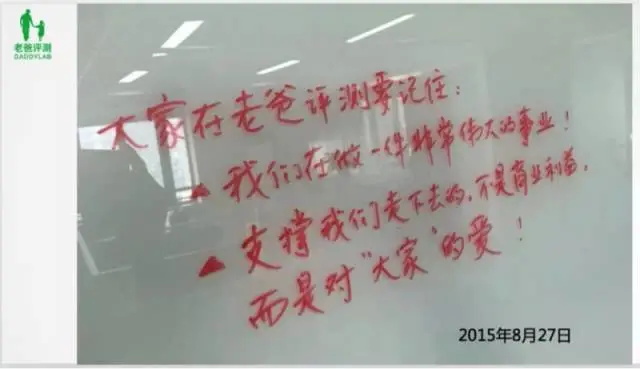 老爸评测
DADDYLAB
大家在老爸评测要记住：
▲ 我们在做一件非常伟大的事业！
▲ 支撑我们走下去的，不是商业利益，
而是对“大家”的爱！
2015年8月27日